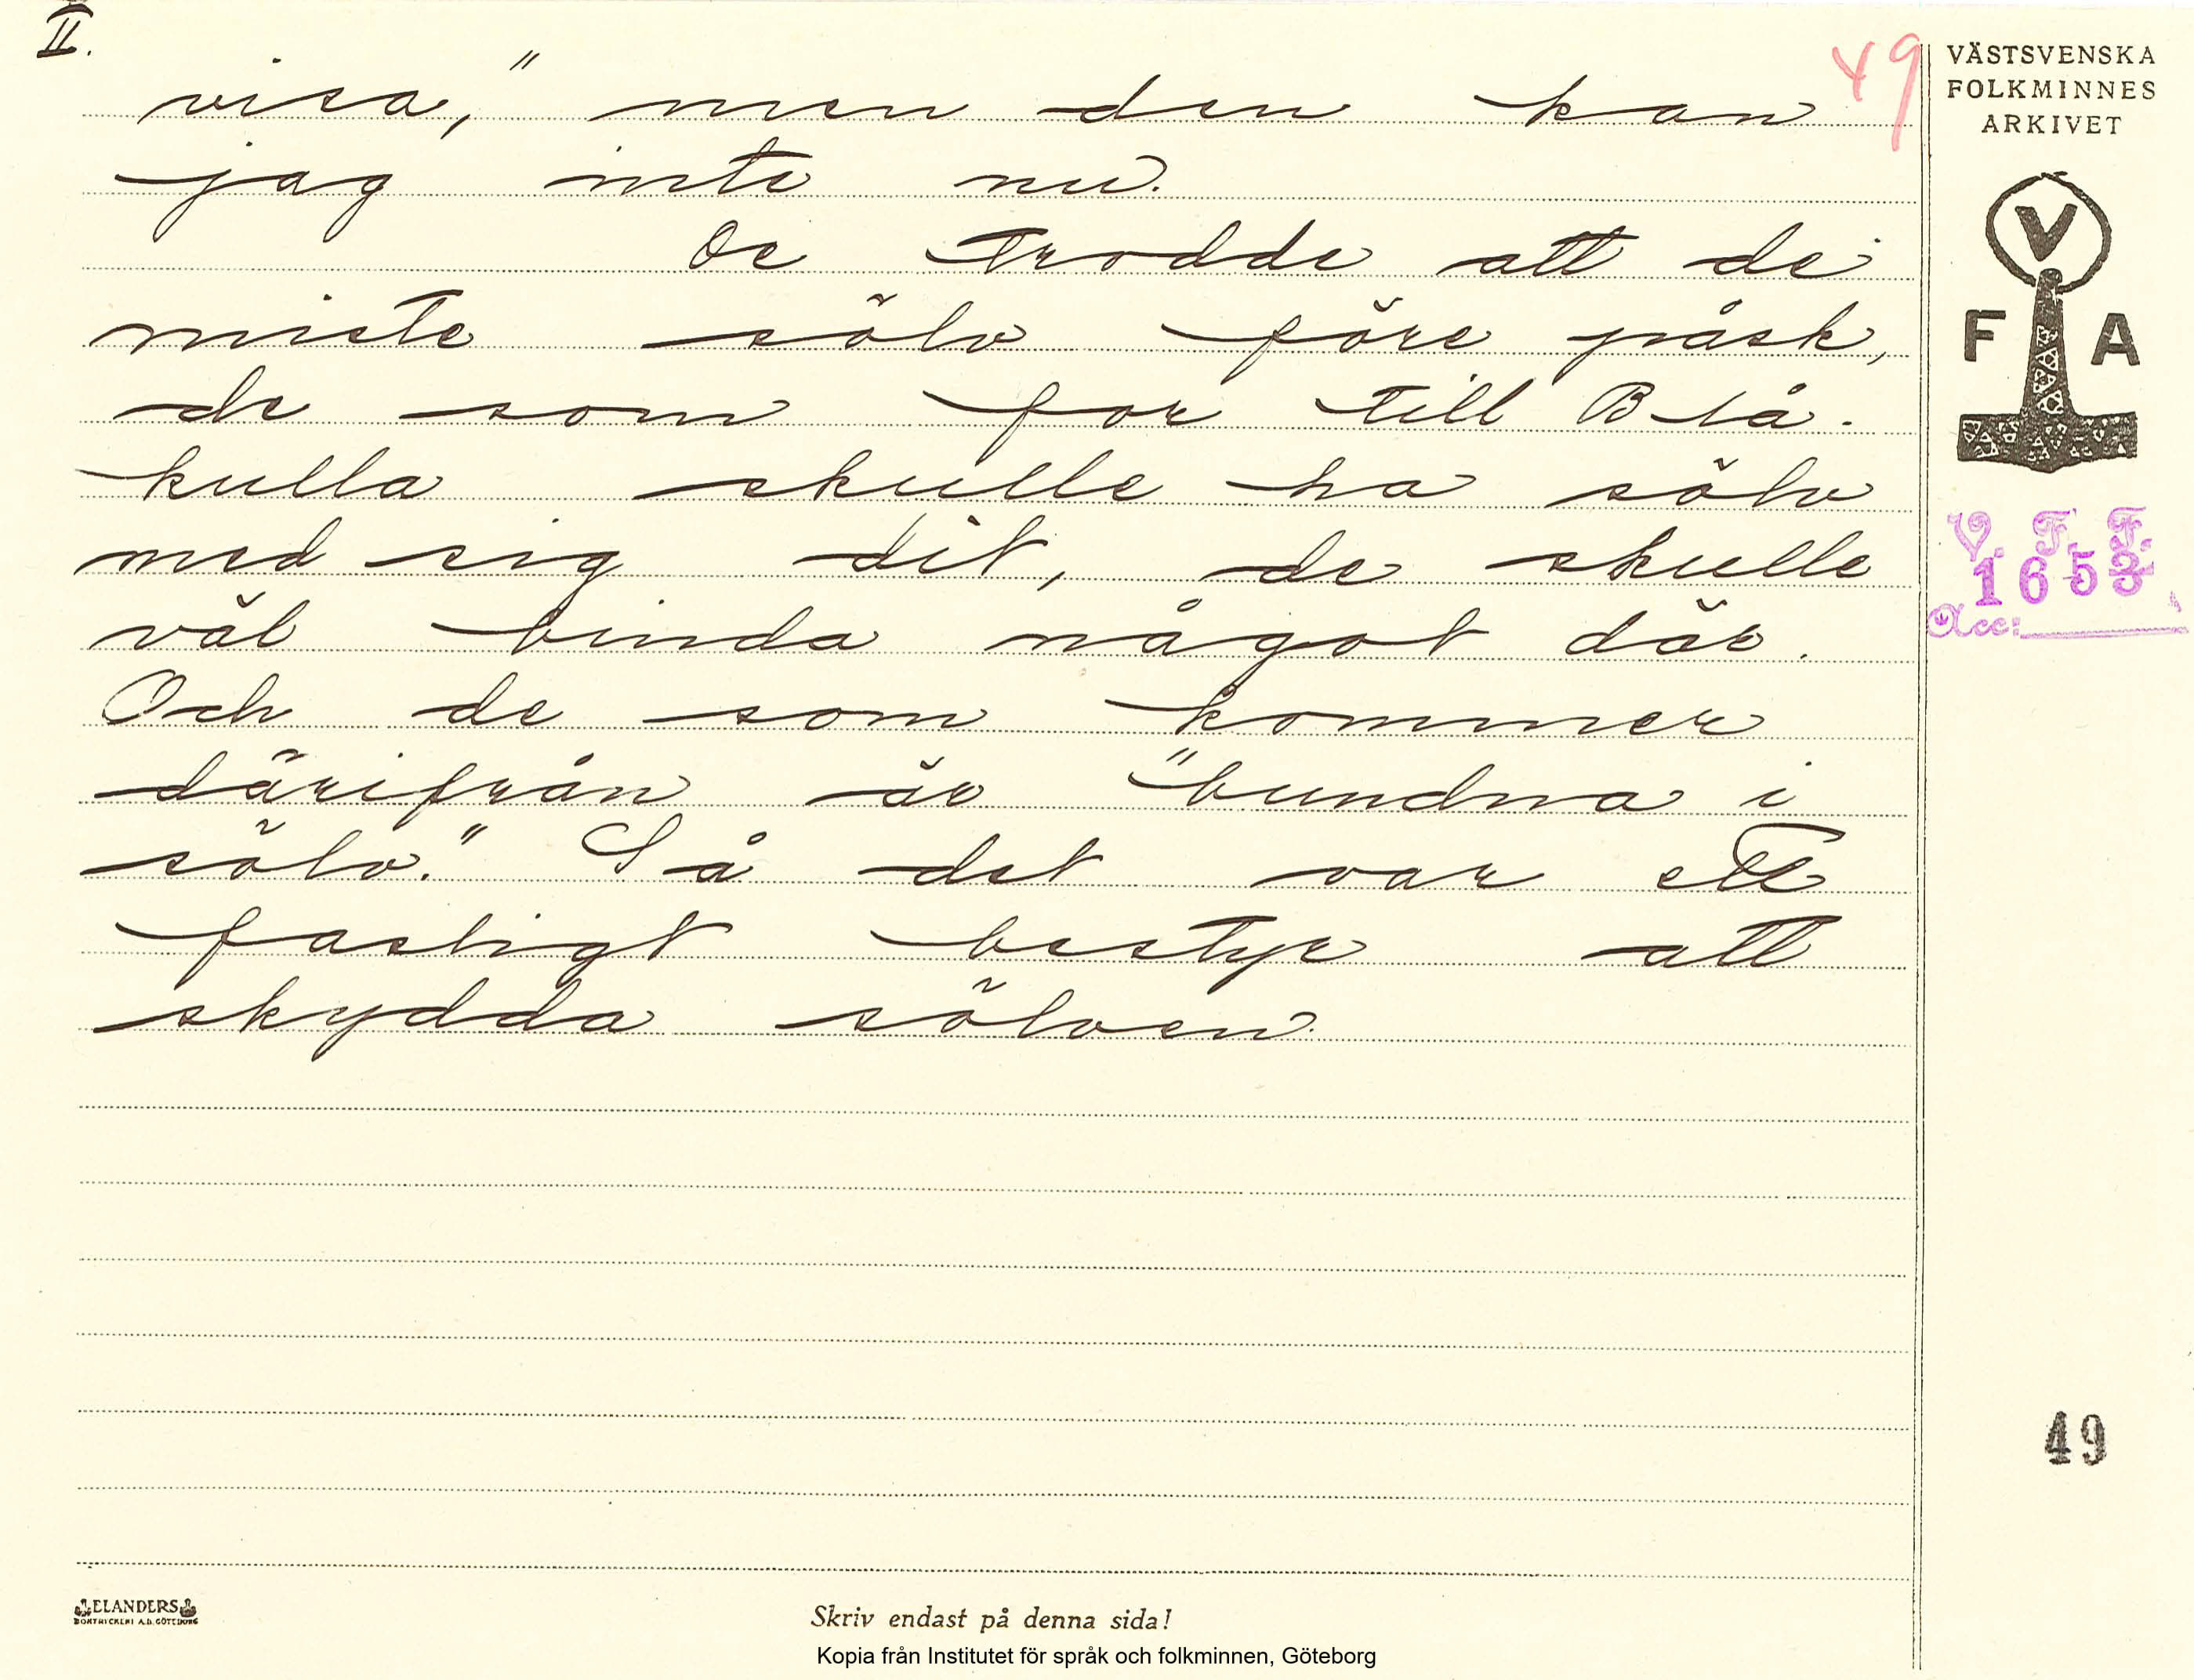 II.
visa," men den kan
jag inte nu.
De trodde att de
miste sölv före påsk,
de som for till Blå-
kulla skulle ha sölv
med sig dit, de skulle
väl binda något där.
Och de som kommer
därifrån är "bundna i
sölv." Så det var ett
fasligt bestyr att
skydda sölven.
49
VÄSTSVENSKA
FOLKMINNES
ARKIVET
V
F A
V. F. F.
1653
Acc:
49
ELANDERS
BOKTRYCKERI A.B. GÖTEBORG
Skriv endast på denna sida!
Kopia från Institutet för språk och folkminnen, Göteborg